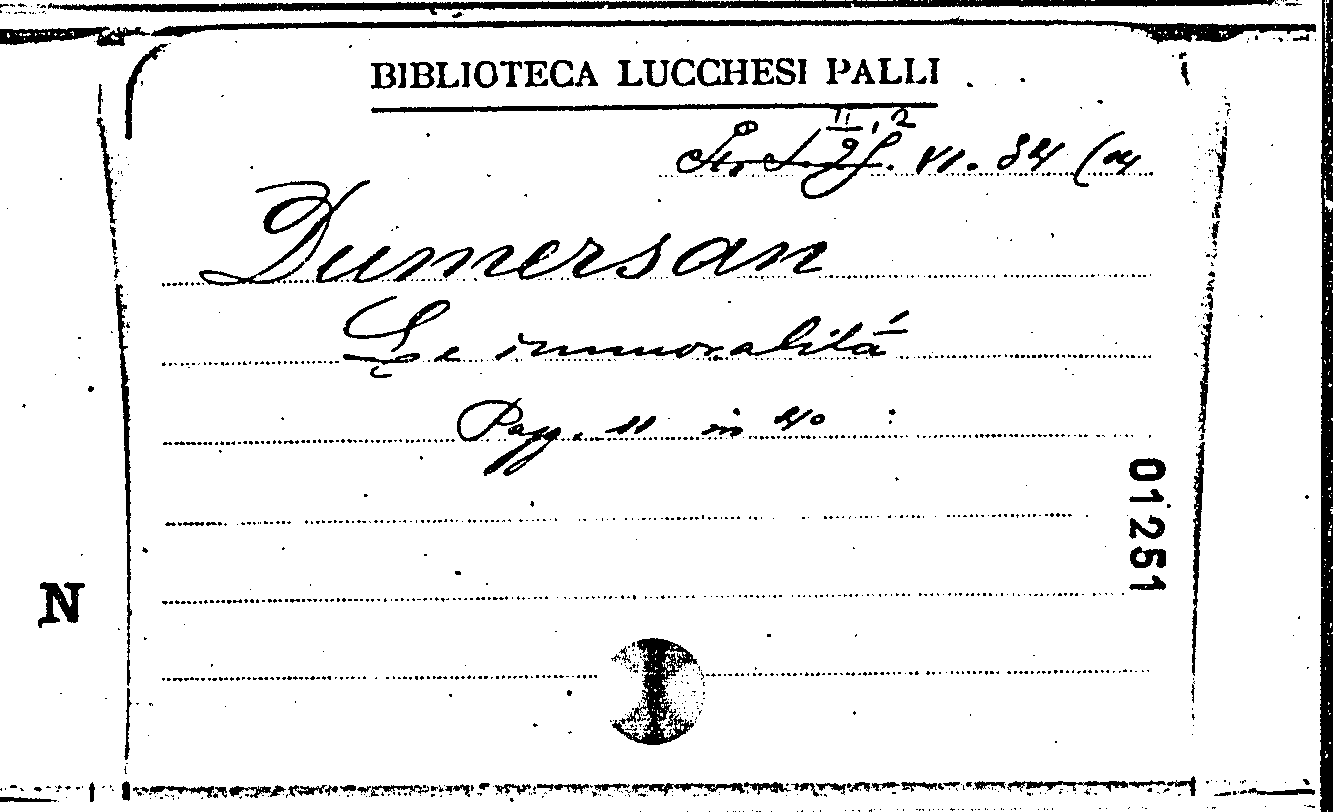 BIBLIOTECA LUCCHESI PALLI
II, 2
VI. 34 (
Dumersan
Le immoralità
Pagg. 11 in 4o
01251
N